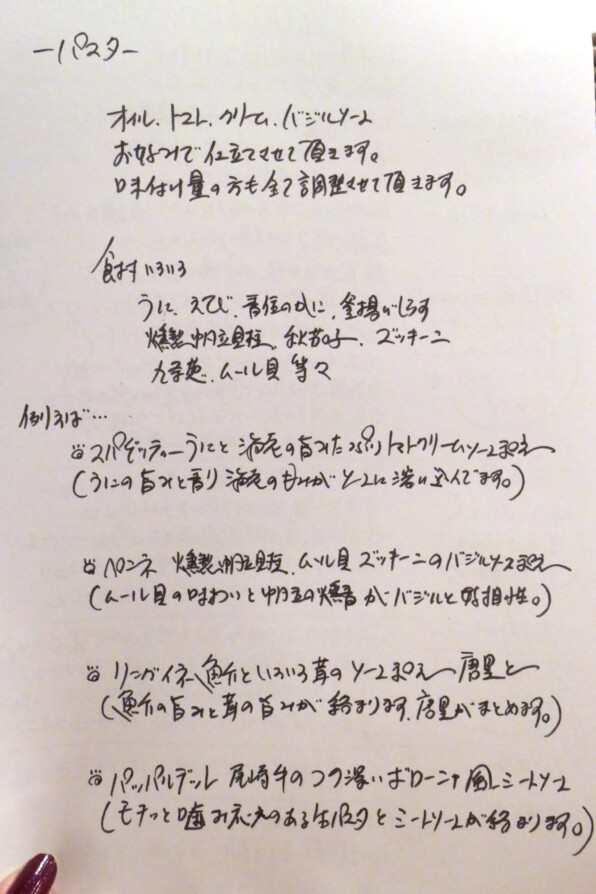 ーパスター
オイル、トマト、クリーム、バジルソース
お好みで仕立てさせて頂きます。
味付け量の方も全て調整させて頂きます。
食材いろいろ
うに、えび、香住のかに、釜揚げしらす
燻製帆立貝柱、秋茄子、ズッキーニ
九条葱、ムール貝 等々
例えば…
スパゲッティーうにと海老の旨みたっぷりトマトクリームソース
(うにの旨みと香り 海老の旨みがソースに溶け込んでます。)
ペンネ 燻製帆立貝柱、ムール貝 ズッキーニのバジルソース
(ムール貝の味わいと帆立の燻香がバジルと好相性。)
リングイネ 魚介といろいろ茸のソース 唐墨と
(魚介の旨みと茸の旨みが絡まります、唐墨がまとめます。)
パッパルデッレ 尾崎牛のコク深いボローニャ風ミートソース
(モチっと噛み応えのある生パスタとミートソースが絡まります。)